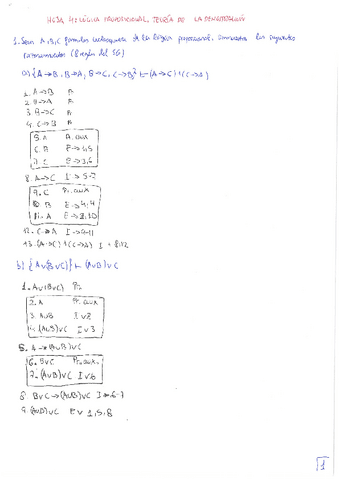 HOJA 4: LÓGICA PROPOSICIONAL. TEORÍA DE LA DEMOSTRACIÓN
1. Sean A, B, C fórmulas cualesquiera de la lógica proposicional, los siguientes
a) {A→B, B→A, B→C, C→B} ⊢ (A→C) ∧ (C→A)
1. A→B P.
2. B→A P.
3. B→C P.
4. C→B P.
5. A P. aux
6. B
7. C
8. A→C I→ 5-7
9. C Pr. aux
10. B
11. A E→ 2,10
12. C→A I→ 9-11
13. (A→C)∧(C→A) I
b) {A∨(B∨C)} ⊢ (A∨B)∨C
1. A∨(B∨C) Pr
2. A Pr. aux
3. A∨B I∨2
4. (A∨B)∨C I∨3
5. A→(A∨B)∨C
6. B∨C Pr. aux.
7. (A∨B)∨C I∨6
8. B∨C→(A∨B)∨C I→ 6-7
9. (A∨B)∨C E∨ 1,5,8
1